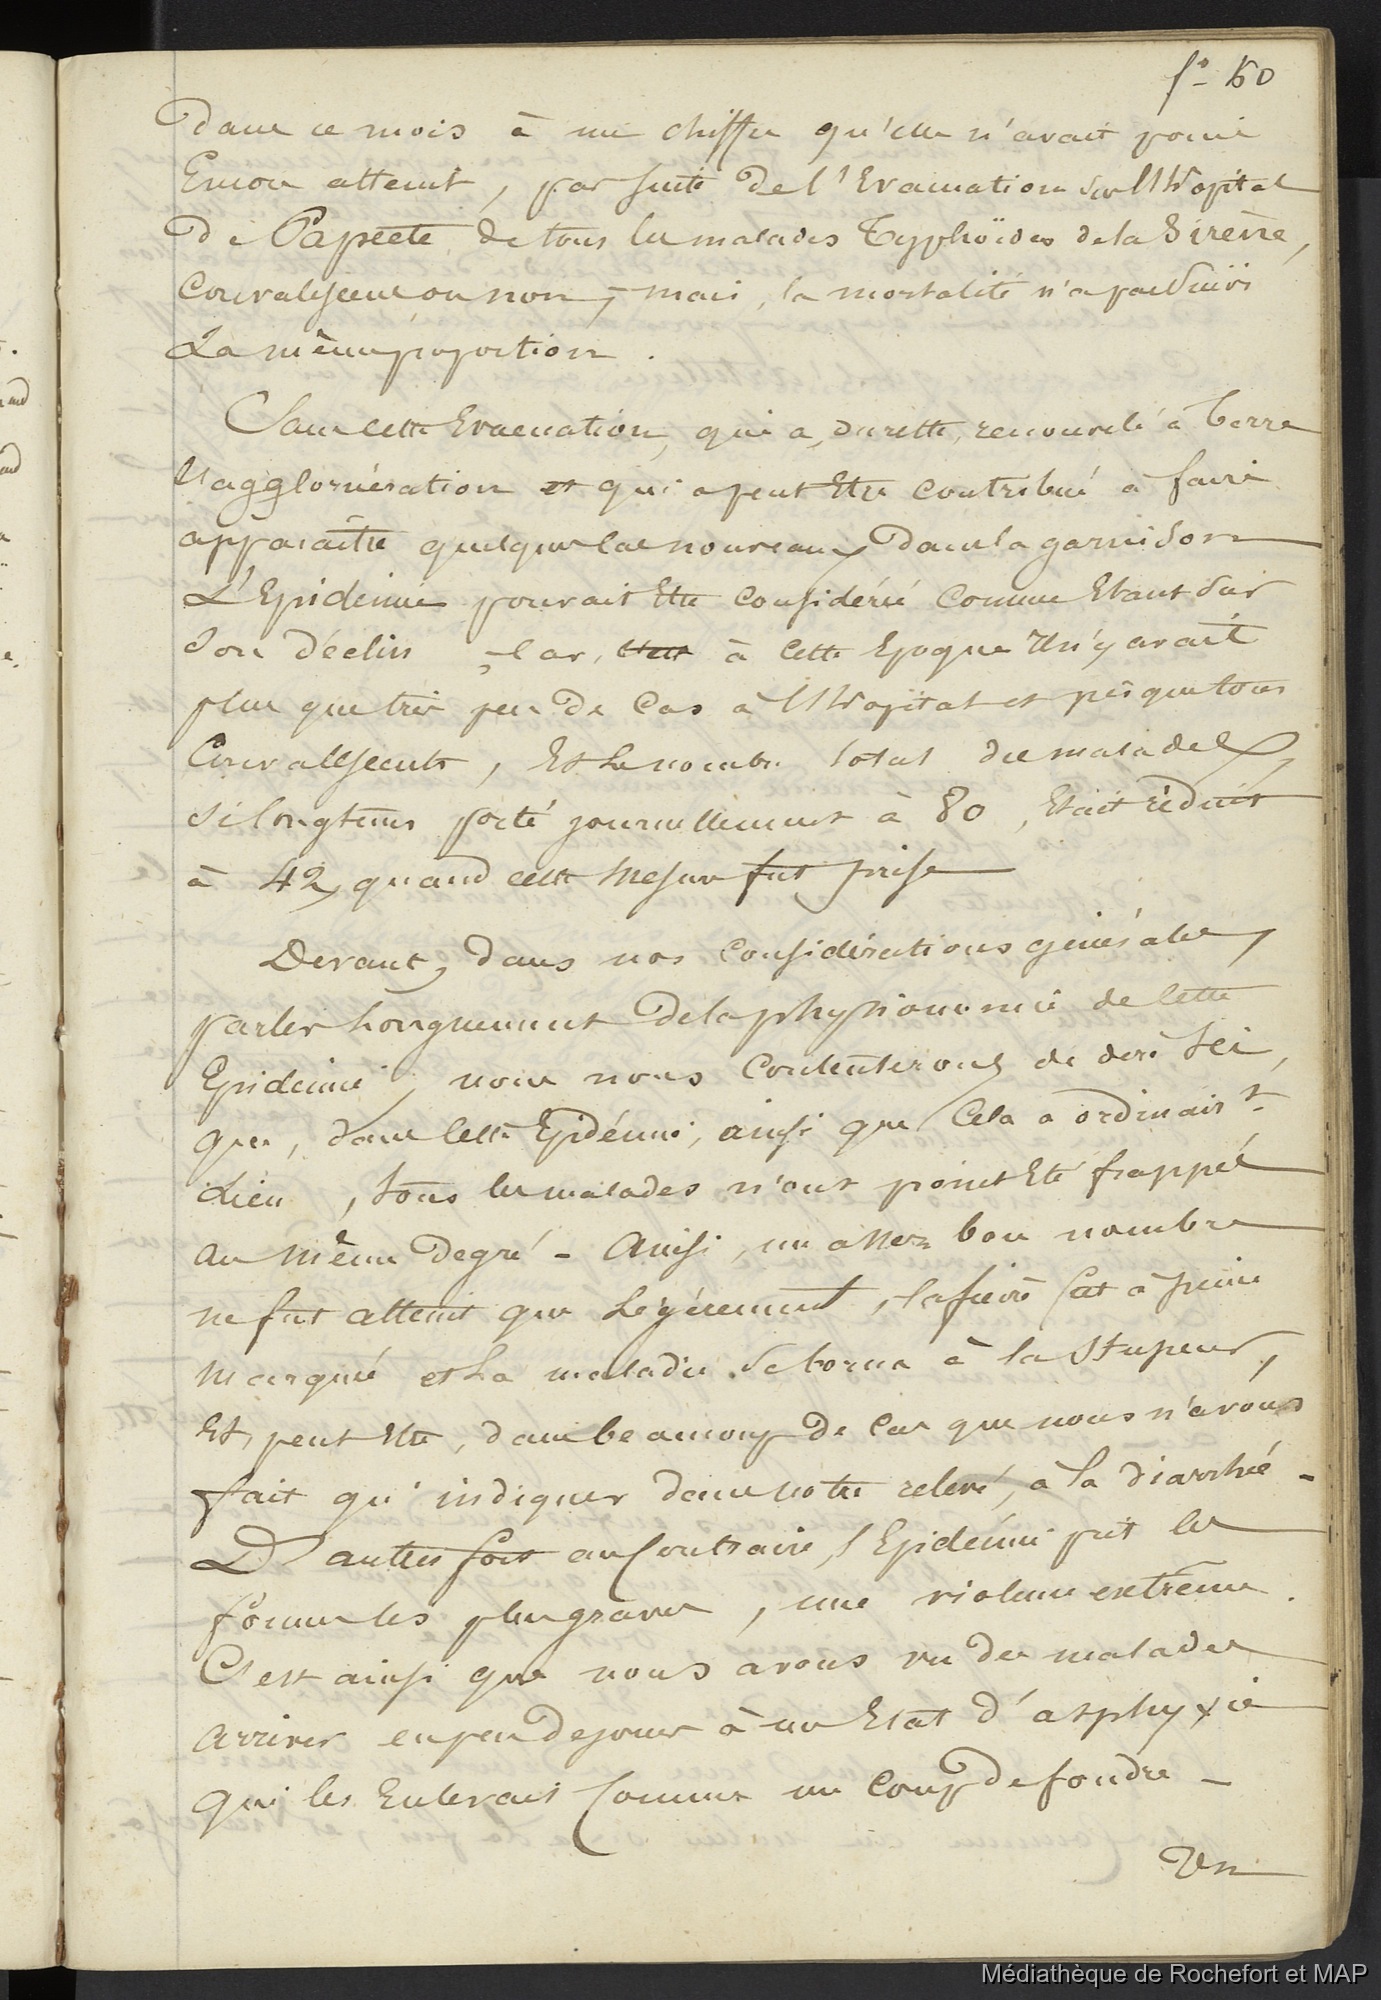 fo 50
dans ce mois à un chiffre qu'elle n'avait point
Encore atteint, par suite de l'Evacuation sur l'Hopital
de Papeete de tous les malades Typhoïdes de la Sirène,
Convalescens ou non, mais, la mortalité n'a pas suivi
La même proportion.
Sans cette Evacuation, qui a, du reste, renouvelé à Terre
l'agglomération et qui a peut Etre contribué à faire
apparaître quelques cas nouveaux dans la garnison
L'Epidémie pouvait Etre Considérée Comme Etant Sur
Son déclin, Car, à cette Epoque Il n'y avait
plus que très peu de Cas à l'Hopital et presque tous
Convalescents, Et Le nombre total des malades,
si longtems porté journellement à 80, Etait réduit
à 42, quand cette Mesure fut prise
Devant, dans nos Considérations générales,
parler Longuement de la physionomie de Cette
Epidémie, nous nous Contenterons de dire Ici,
que, dans Cette Epidémie, ainsi que Cela a ordinairt
Lieu, tous les malades n'ont point Eté frappés
au même degré - Ainsi, un assez bon nombre
ne fut atteint que Légèrement, la fièvre fut à peine
marquée et La maladie Se borna à la Stupeur,
Et, peut Etre, dans beaucoup de Cas que nous n'avons
fait qu'indiquer dans notre relevé, à la diarrhée -
D'autres fois au Contraire, l'Epidémie prit les
formes les plus graves, une violence extrême.
C'est ainsi que nous avons vu des malades
arriver en peu de jours à un Etat d'asphyxie
qui les Enlevait Comme un Coup de foudre -
Un
Médiathèque de Rochefort et MAP